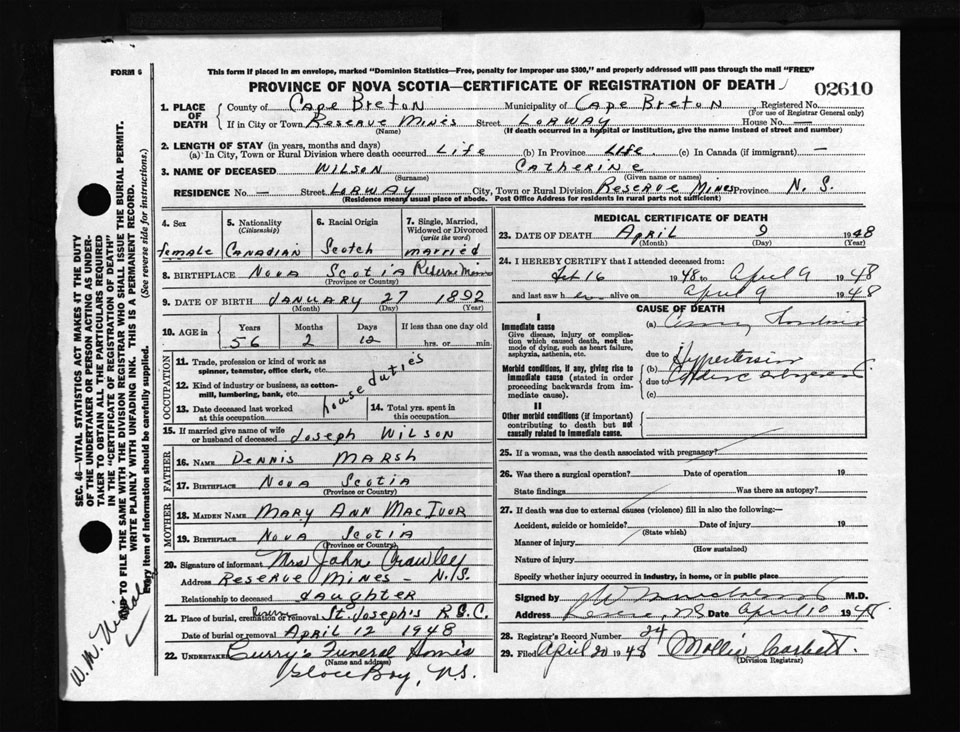 FORM 6
This form if placed in an envelope, marked "Dominion Statistics—Free, penalty for improper use $300," and properly addressed will pass through the mail "FREE"
PROVINCE OF NOVA SCOTIA—CERTIFICATE OF REGISTRATION OF DEATH
02610
1. PLACE OF DEATH { County of Cape Breton Municipality of Cape Breton Registered No.
(For use of Registrar General only)
If in City or Town Reserve Mines Street Lorway House No. —
(Name) (If death occurred in a hospital or institution, give the name instead of street and number)
2. LENGTH OF STAY (in years, months and days)
(a) In City, Town or Rural Division where death occurred Life (b) In Province Life. (c) In Canada (if immigrant) —
3. NAME OF DECEASED Wilson Catherine
(Surname) (Given name or names)
RESIDENCE No. — Street Lorway City, Town or Rural Division Reserve Mines Province N. S.
(Residence means usual place of abode. Post Office Address for residents in rural parts not sufficient)
4. Sex female
5. Nationality (Citizenship) Canadian
6. Racial Origin Scotch
7. Single, Married, Widowed or Divorced (write the word) married
8. BIRTHPLACE Nova Scotia Reserve Mines
(Province or Country)
9. DATE OF BIRTH January 27 1892
(Month) (Day) (Year)
10. AGE in Years 56 Months 2 Days 12 If less than one day old hrs. or min.
OCCUPATION
11. Trade, profession or kind of work as spinner, teamster, office clerk, etc.
12. Kind of industry or business, as cotton-mill, lumbering, bank, etc.
house duties
13. Date deceased last worked at this occupation
14. Total yrs. spent in this occupation
15. If married give name of wife or husband of deceased Joseph Wilson
FATHER
16. NAME Dennis Marsh
17. BIRTHPLACE Nova Scotia
(Province or Country)
MOTHER
18. MAIDEN NAME Mary Ann MacIvor
19. BIRTHPLACE Nova Scotia
(Province or Country)
20. Signature of informant Mrs John Crawley
Address Reserve Mines - N.S.
Relationship to deceased daughter
21. Place of burial, cremation or removal St. Joseph's R.C.
Date of burial or removal April 12 1948
22. UNDERTAKER Curry's Funeral Home
(Name and address)
Glace Bay, N.S.
MEDICAL CERTIFICATE OF DEATH
23. DATE OF DEATH April 9 1948
(Month) (Day) (Year)
24. I HEREBY CERTIFY that I attended deceased from:
Feb 16 1948 to April 9 1948
and last saw her alive on April 9 1948
CAUSE OF DEATH
I
Immediate cause
Give disease, injury or complication which caused death, not the mode of dying, such as heart failure, asphyxia, asthenia, etc.
(a)
due to
Morbid conditions, if any, giving rise to immediate cause (stated in order proceeding backwards from immediate cause).
(b) Hypertension
due to
(c)
II
Other morbid conditions (if important) contributing to death but not causally related to immediate cause.
25. If a woman, was the death associated with pregnancy?
26. Was there a surgical operation? Date of operation 19
State findings Was there an autopsy?
27. If death was due to external causes (violence) fill in also the following:—
Accident, suicide or homicide? Date of injury 19
(State which)
Manner of injury
(How sustained)
Nature of injury
Specify whether injury occurred in industry, in home, or in public place
Signed by M.D.
Address Reserve, N.S. Date April 10 1948
28. Registrar's Record Number 24
29. Filed April 20 1948 Mollie Corbett.
(Division Registrar)
SEC. 46—VITAL STATISTICS ACT MAKES IT THE DUTY
OF THE UNDERTAKER OR PERSON ACTING AS UNDER-
TAKER TO OBTAIN ALL THE PARTICULARS REQUIRED
IN THE "CERTIFICATE OF REGISTRATION OF DEATH"
AND TO FILE THE SAME WITH THE DIVISION REGISTRAR WHO SHALL ISSUE THE BURIAL PERMIT.
WRITE PLAINLY WITH UNFADING INK. THIS IS A PERMANENT RECORD.
Every item of information should be carefully supplied. (See reverse side for instructions.)